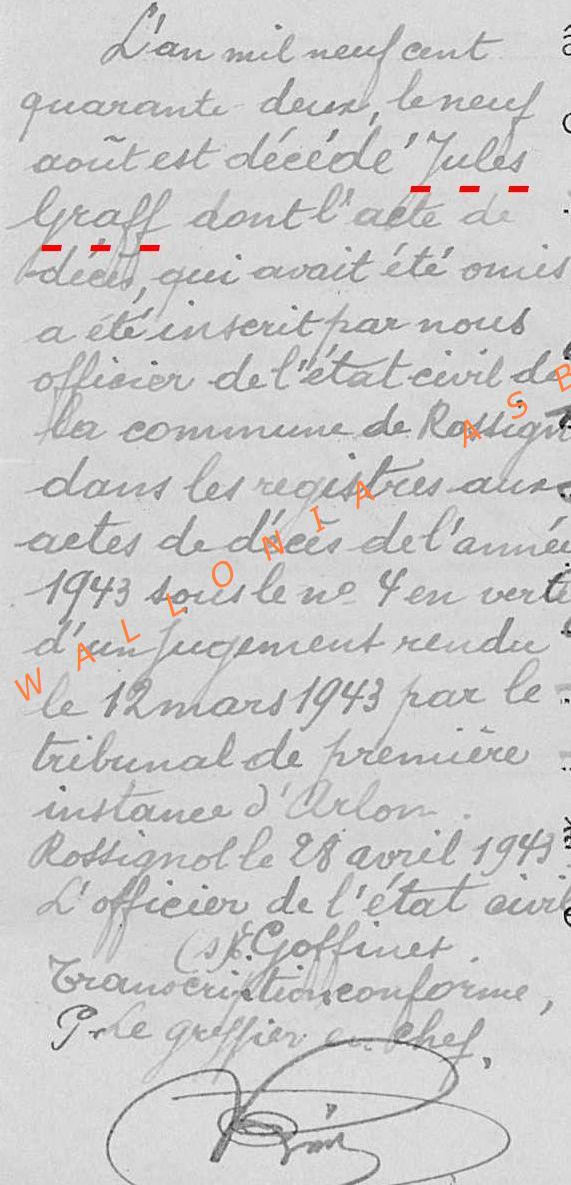 L'an mil neuf cent
quarante-deux, le neuf
août est décédé Jules
Graff dont l'acte de
décès, qui avait été omis
a été inscrit par nous
officier de l'état civil de
la commune de Rossign
dans les registres aux
actes de décès de l'année
1943 sous le no 4 en vertu
d'un jugement rendu
le 12 mars 1943 par le
tribunal de première
instance d'Arlon.
Rossignol le 28 avril 1943
L'officier de l'état civil
(s) E. Goffinet.
Transcription conforme,
P. Le greffier en chef,
WALLONIA ASB